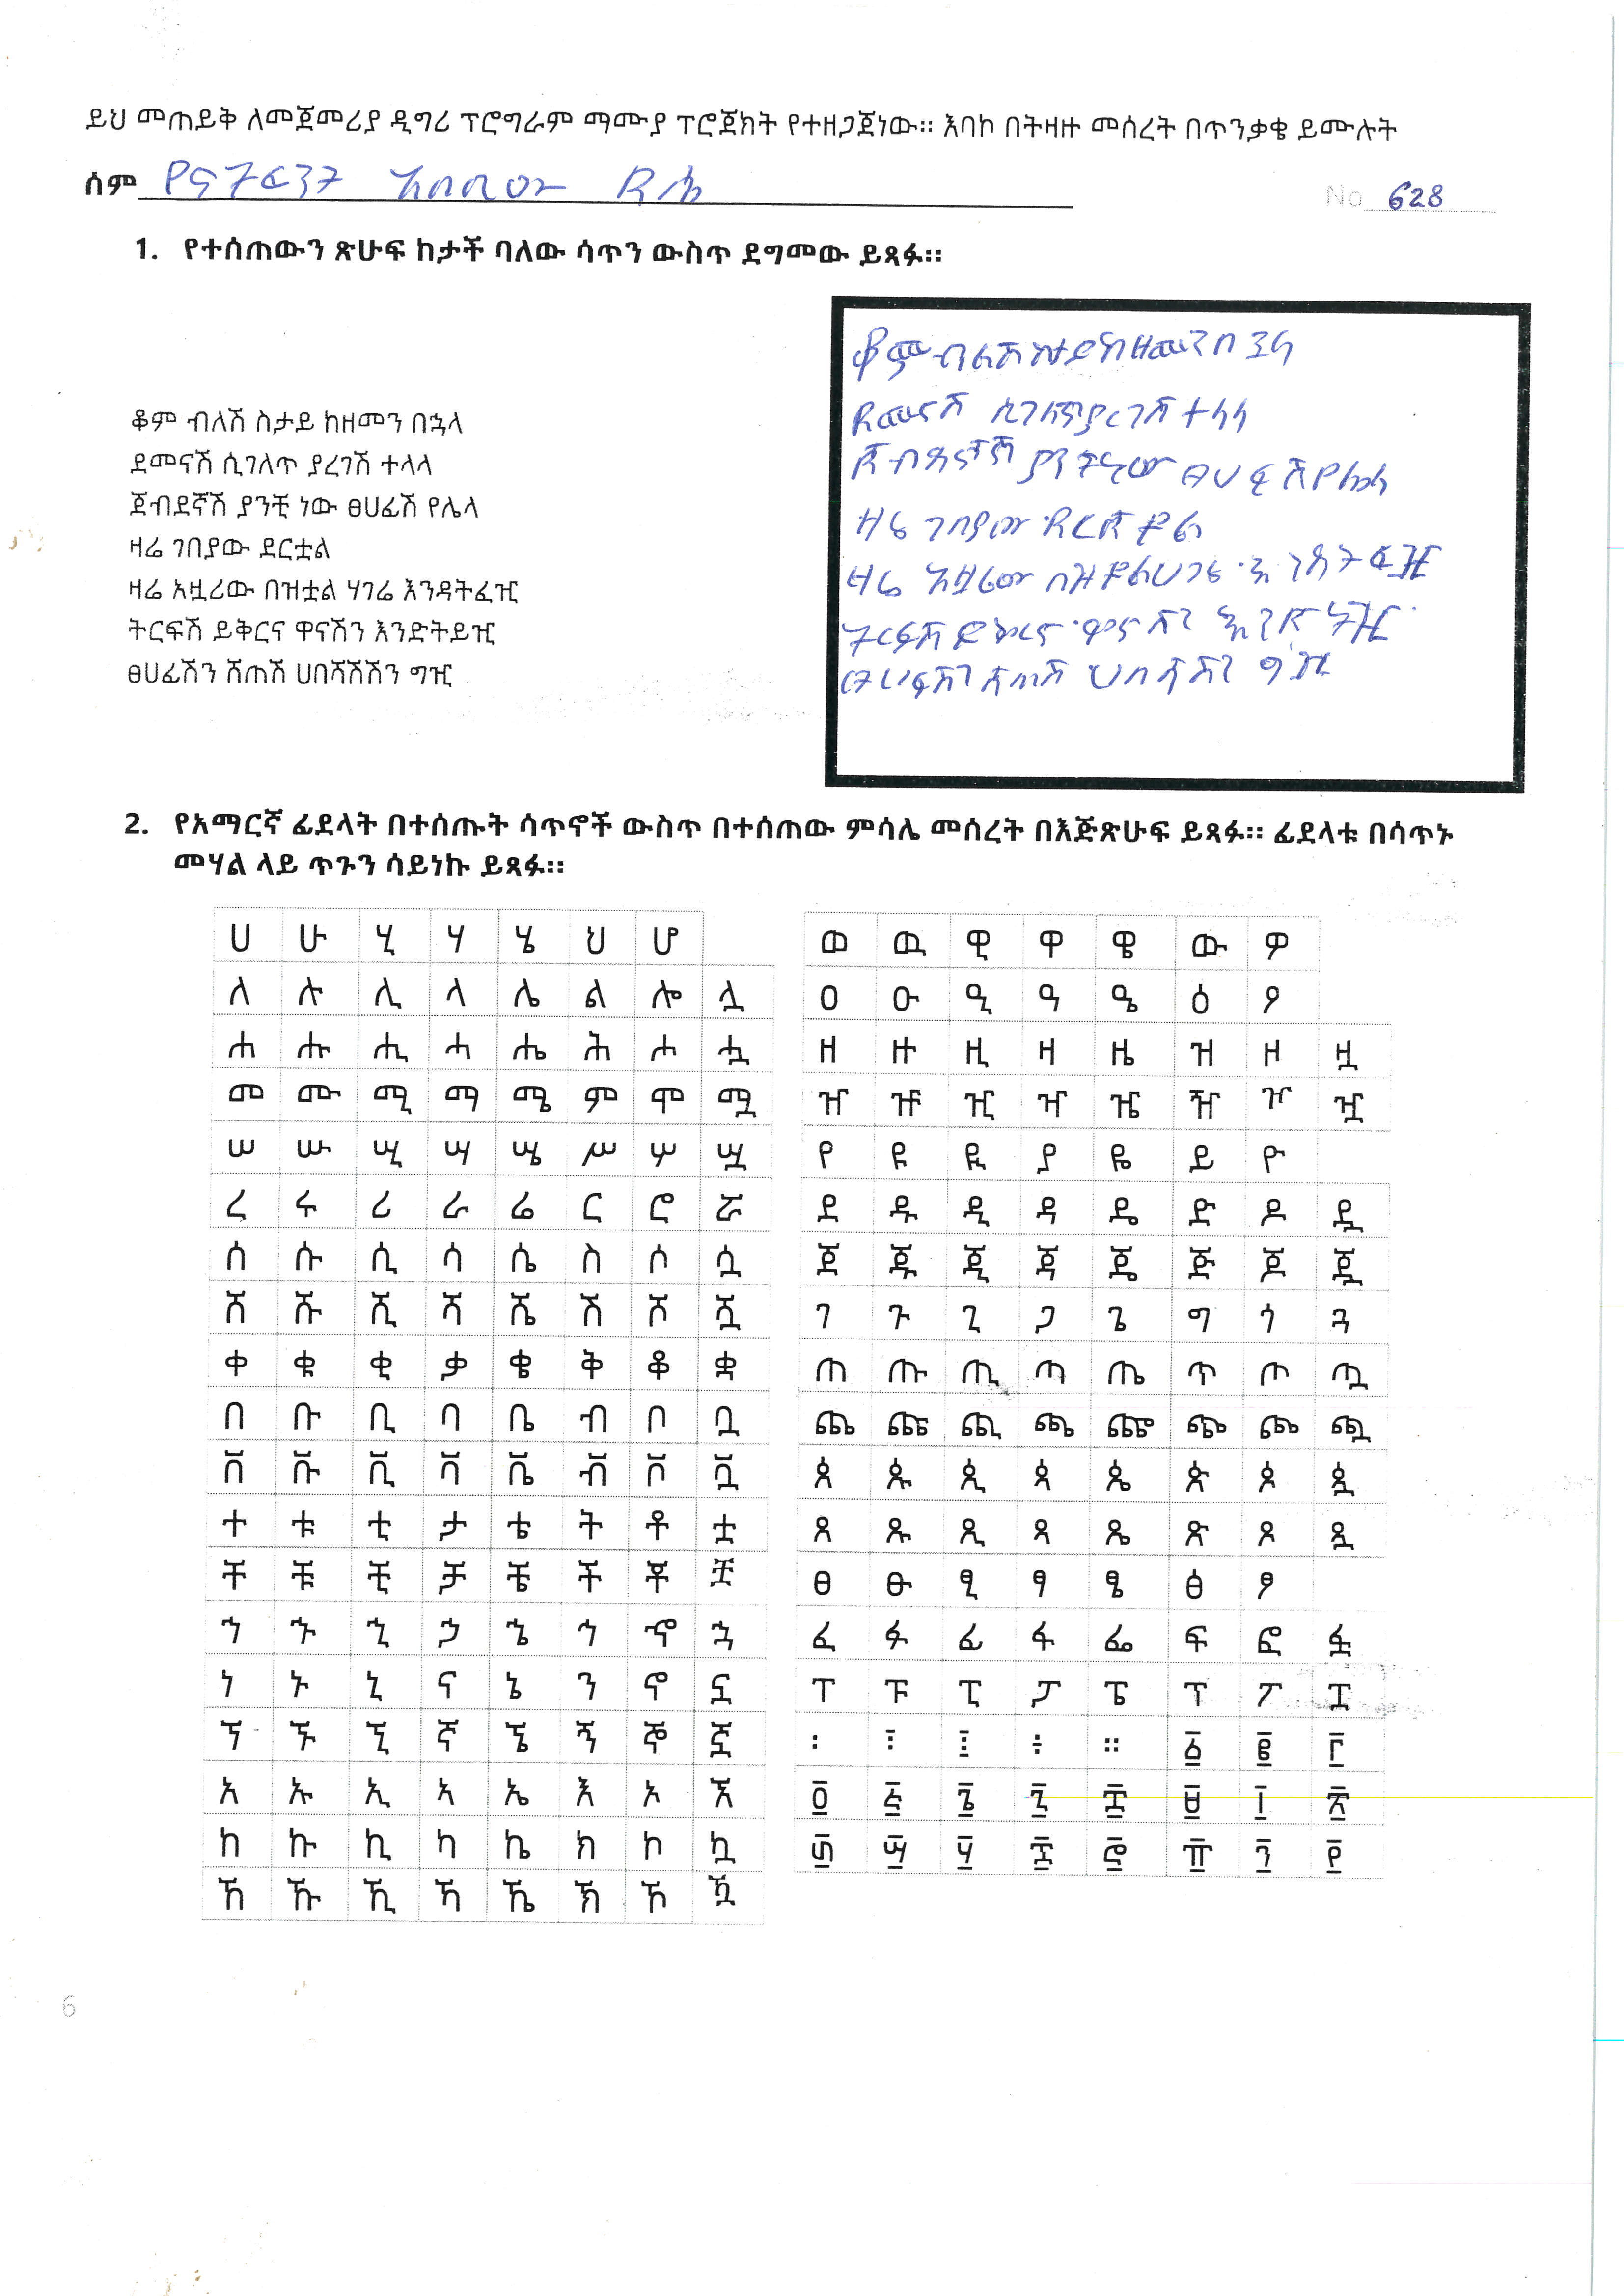 ይህ መጠይቅ ለመጀመሪያ ዲግሪ ፕሮግራም ማሙያ ፕሮጀክት የተዘጋጀነው። እባኮ በትዛዙ መሰረት በጥንቃቄ ይሙሉት
ሰም
No 628
1. የተሰጠውን ጽሁፍ ከታች ባለው ሳጥን ውስጥ ደግመው ይጻፉ።
ቆም ብለሽ ስታይ ከዘመን በኋላ
ደመናሽ ሲገለጥ ያረገሽ ተላላ
ጀብደኛሽ ያንቺ ነው ፀሀፊሽ የሌላ
ዛሬ ገበያው ደርቷል
ዛሬ አዟሪው በዝቷል ሃገሬ እንዳትፈዢ
ትርፍሽ ይቅርና ዋናሽን እንድትይዢ
ፀሀፊሽን ሸጠሽ ሀበሻሽሽን ግዢ
ቆም ብልሽ ስታይ ከዘመን በኋላ
ደመናሽ ሲገለጥ ያረገሽ ተላላ
ያንቺ ነው ፀሀፊሽ የሌላ
ዛሬ ገበያው
ዛሬ
ትርፍሽ ይቅርና ዋናሽን
ሸጠሽ ሀበሻሽን ግዢ
2. የአማርኛ ፊደላት በተሰጡት ሳጥኖች ውስጥ በተሰጠው ምሳሌ መሰረት በእጅጽሁፍ ይጻፉ። ፊደላቱ በሳጥኑ
መሃል ላይ ጥጉን ሳይነኩ ይጻፉ።
ሀ ሁ ሂ ሃ ሄ ህ ሆ
ለ ሉ ሊ ላ ሌ ል ሎ ሏ
ሐ ሑ ሒ ሓ ሔ ሕ ሖ ሗ
መ ሙ ሚ ማ ሜ ም ሞ ሟ
ሠ ሡ ሢ ሣ ሤ ሥ ሦ ሧ
ረ ሩ ሪ ራ ሬ ር ሮ ሯ
ሰ ሱ ሲ ሳ ሴ ስ ሶ ሷ
ሸ ሹ ሺ ሻ ሼ ሽ ሾ ሿ
ቀ ቁ ቂ ቃ ቄ ቅ ቆ ቋ
በ ቡ ቢ ባ ቤ ብ ቦ ቧ
ቨ ቩ ቪ ቫ ቬ ቭ ቮ ቯ
ተ ቱ ቲ ታ ቴ ት ቶ ቷ
ቸ ቹ ቺ ቻ ቼ ች ቾ ቿ
ኀ ኁ ኂ ኃ ኄ ኅ ኆ ኋ
ነ ኑ ኒ ና ኔ ን ኖ ኗ
ኘ ኙ ኚ ኛ ኜ ኝ ኞ ኟ
አ ኡ ኢ ኣ ኤ እ ኦ ኧ
ከ ኩ ኪ ካ ኬ ክ ኮ ኳ
ኸ ኹ ኺ ኻ ኼ ኽ ኾ ዃ
ወ ዉ ዊ ዋ ዌ ው ዎ
ዐ ዑ ዒ ዓ ዔ ዕ ዖ
ዘ ዙ ዚ ዛ ዜ ዝ ዞ ዟ
ዠ ዡ ዢ ዣ ዤ ዥ ዦ ዧ
የ ዩ ዪ ያ ዬ ይ ዮ
ደ ዱ ዲ ዳ ዴ ድ ዶ ዷ
ጀ ጁ ጂ ጃ ጄ ጅ ጆ ጇ
ገ ጉ ጊ ጋ ጌ ግ ጎ ጓ
ጠ ጡ ጢ ጣ ጤ ጥ ጦ ጧ
ጨ ጩ ጪ ጫ ጬ ጭ ጮ ጯ
ጰ ጱ ጲ ጳ ጴ ጵ ጶ ጷ
ጸ ጹ ጺ ጻ ጼ ጽ ጾ ጿ
ፀ ፁ ፂ ፃ ፄ ፅ ፆ
ፈ ፉ ፊ ፋ ፌ ፍ ፎ ፏ
ፐ ፑ ፒ ፓ ፔ ፕ ፖ ፗ
፡ ፤ ፥ ፦ ። ፩ ፪ ፫
፬ ፭ ፮ ፯ ፰ ፱ ፲ ፳
፴ ፵ ፶ ፷ ፸ ፹ ፺ ፻
6